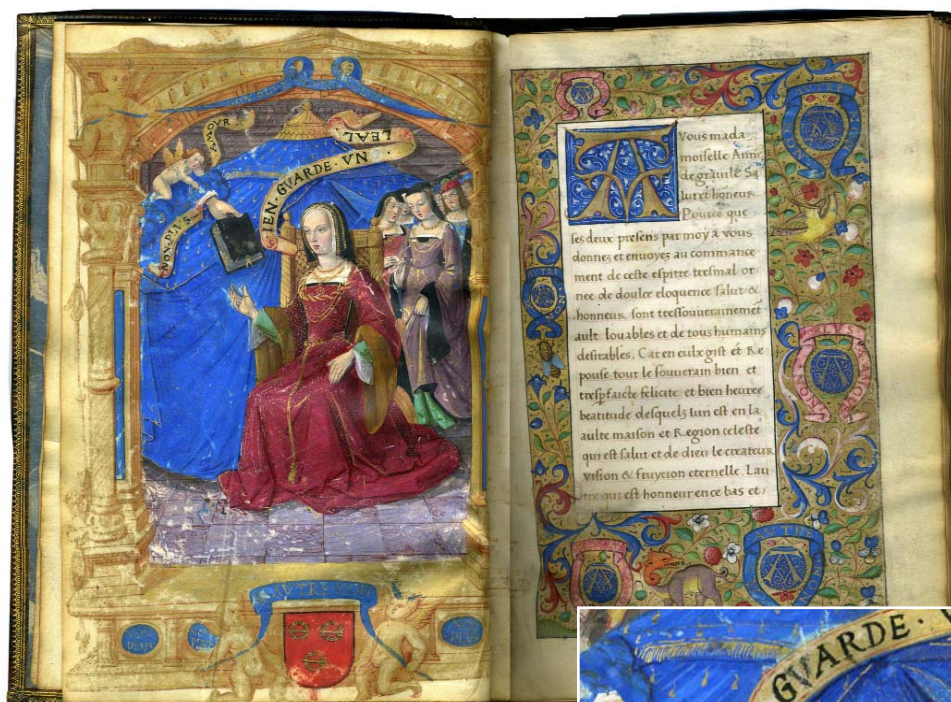 AMOVR
LEAL
IEN GVARDE VN
NON PLVS
AVTRE NON
A Vous mada
moiselle Anne
de grauile Sa
lut et honeur
Pource que
ses deux presens par moy a vous
donnes et enuoyez au commance
ment de ceste espitre tresmal or
nee de doulce eloquence salut &
honneur sont tressouuerainemet
ault louables et de tous humains
desirables. Car en eulx gist et Re
pouse tout le souuerain bien et
trespfaicte felicite et bien heuree
beatitude desquels lun est en la
aulte maison et Region celeste
qui est salut et de dieu le createur
vision & fruycion eternelle. Lau
tre qui est honneur en ce bas et
AVTRE
NON
AVTRE
NON
GVARDE